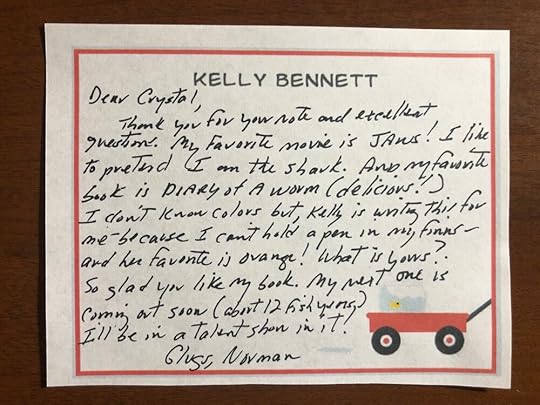 KELLY BENNETT
Dear Crystal,
Thank you for your note and excellent
questions. My favorite movie is JAWS! I like
to pretend I am the shark. And my favorite
book is DIARY of A WORM (delicious!)
I don't know colors but, Kelly is writing this for
me-because I can't hold a pen in my finns-
and her favorite is orange! What is yours?
So glad you like my book. My next one is
coming out soon (about 12 Fish years)
I'll be in a talent show in it!
Glugs, Norman